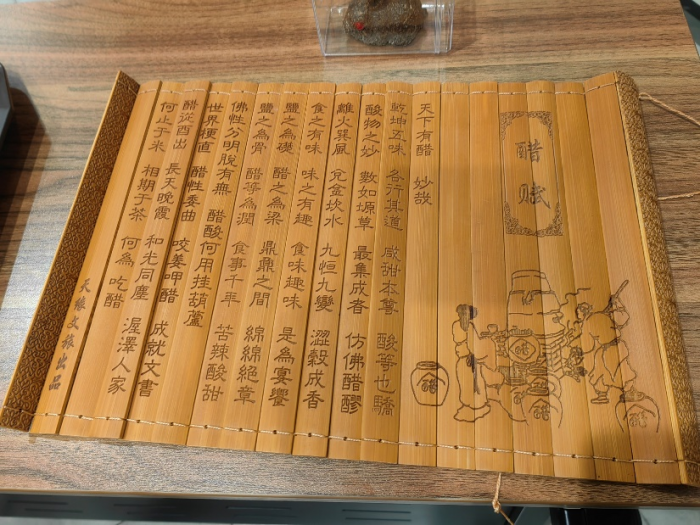 醋賦
天下有醋 妙哉
乾坤五味 各行其道 咸甜本尊 酸等也驕
酸物之妙 數如塬草 最集成者 仿佛醋醪
離火巽風 兌金坎水 九恒九變 澀穀成香
食之有味 味之有趣 食味趣味 是為宴饗
鹽之為礎 醋之為梁 鼎鼐之間 綿綿絕章
鹽之為骨 醋等為潤 食事千年 苦辣酸甜
佛性分明脫有無 醋酸何用挂葫蘆
世界梗直 醋性委曲 咬姜呷醋 成就文書
醋從酉出 長天晚霞 和光同塵 渥澤人家
何止于米 相期于茶 何為吃醋
天緣文旅出品
醋
醋
醋
醋